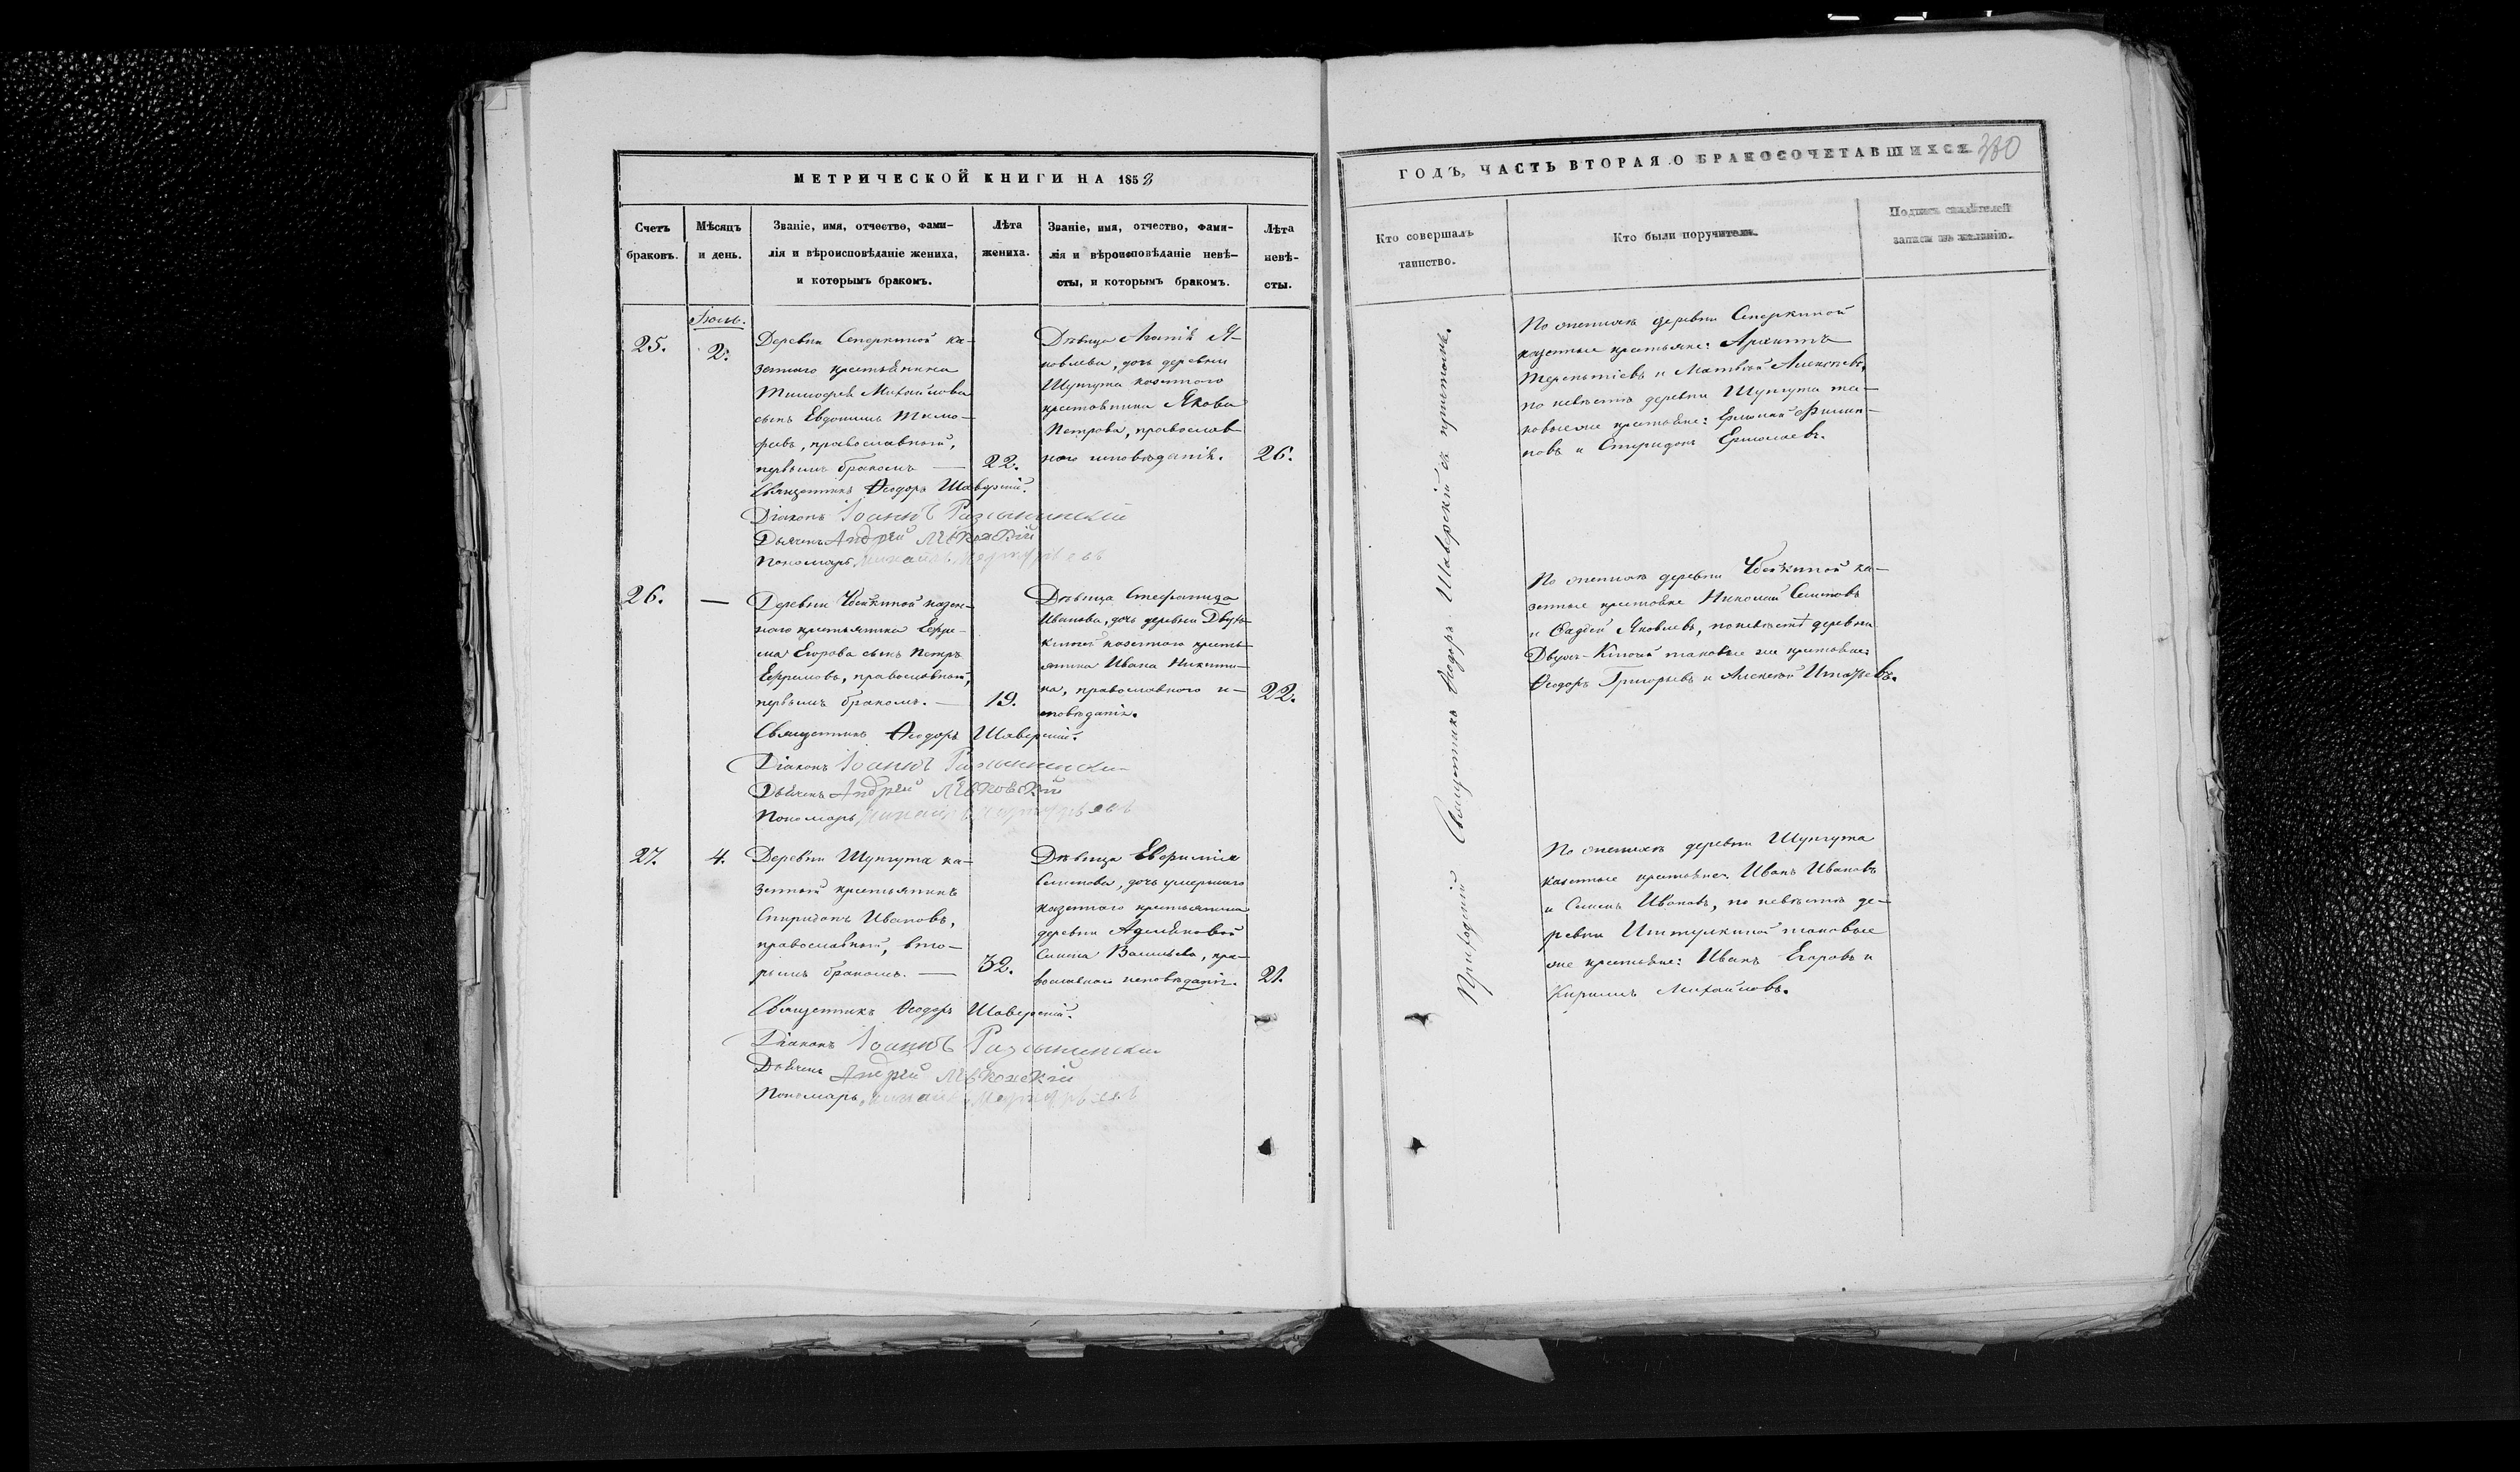 МЕТРИЧЕСКОЙ КНИГИ НА 1853
Счетъ
браковъ.
Мѣсяцъ
и день.
Званіе, имя, отчество, фами-
лія и вѣроисповѣданіе жениха,
и которымъ бракомъ.
Лѣта
жениха.
Званіе, имя, отчество, фами-
лія и вѣроисповѣданіе невѣ-
сты, и которымъ бракомъ.
Лѣта
невѣ-
сты.
25.
2.
Деревни ка-
зеннаго крестьянина
Тимофея Михайлова
сынъ Евдокимъ Тимо-
феевъ, православный,
первымъ бракомъ —
22.
Дѣвица Агапія Я-
ковлева, дочь деревни
Шунгута казеннаго
крестьянина Якова
Петрова, православ-
наго исповѣданія.
26.
Священникъ Ѳеодоръ Шаверскій.
Діаконъ Іоаннъ
Дьячекъ Андрей
Пономарь
26.
—
Деревни казен-
наго крестьянина Ефре-
ма Егорова сынъ Петръ
Ефремовъ, православный,
первымъ бракомъ. —
19.
Дѣвица Стефанида
Иванова, дочь деревни Двухъ-
ключей казеннаго кресть-
янина Ивана Никити-
на, православнаго и-
сповѣданія.
22.
Священникъ Ѳеодоръ Шаверскій.
Діаконъ Іоаннъ
Дьячекъ Андрей
Пономарь
27.
4.
Деревни Шунгута ка-
зенный крестьянинъ
Спиридонъ Ивановъ,
православный, вто-
рымъ бракомъ. —
32.
Дѣвица Евфимія
Семенова, дочь умершаго
казеннаго крестьянина
деревни
Семена Васильева, пра-
вославнаго исповѣданія.
21.
Священникъ Ѳеодоръ Шаверскій.
Діаконъ Іоаннъ
Дьячекъ Андрей
Пономарь
ГОДЪ, ЧАСТЬ ВТОРАЯ О БРАКОСОЧЕТАВШИХСЯ
Кто совершалъ
таинство.
Кто были поручители.
Подпись свидѣтелей
записи по желанію.
Приходскій Священникъ Ѳеодоръ Шаверскій съ причтомъ.
По женихѣ деревни
казенные крестьяне: Архиппъ
Терентіевъ и Матвей Алексеевъ,
по невѣстѣ деревни Шунгута та-
ковые же крестьяне: Ермолай Филип-
повъ и Спиридонъ Ермолаевъ.
По женихѣ деревни ка-
зенные крестьяне Николай Семеновъ
и Фадей Яковлевъ, по невѣстѣ деревни
Двухъ-Ключей таковые же крестьяне:
Ѳеодоръ Григорьевъ и Алексей Игнатьевъ.
По женихѣ деревни Шунгута
казенные крестьяне: Иванъ Ивановъ
и Семенъ Ивановъ, по невѣстѣ де-
ревни Иштулкиной таковые
же крестьяне: Иванъ Егоровъ и
Кириллъ Михайловъ.